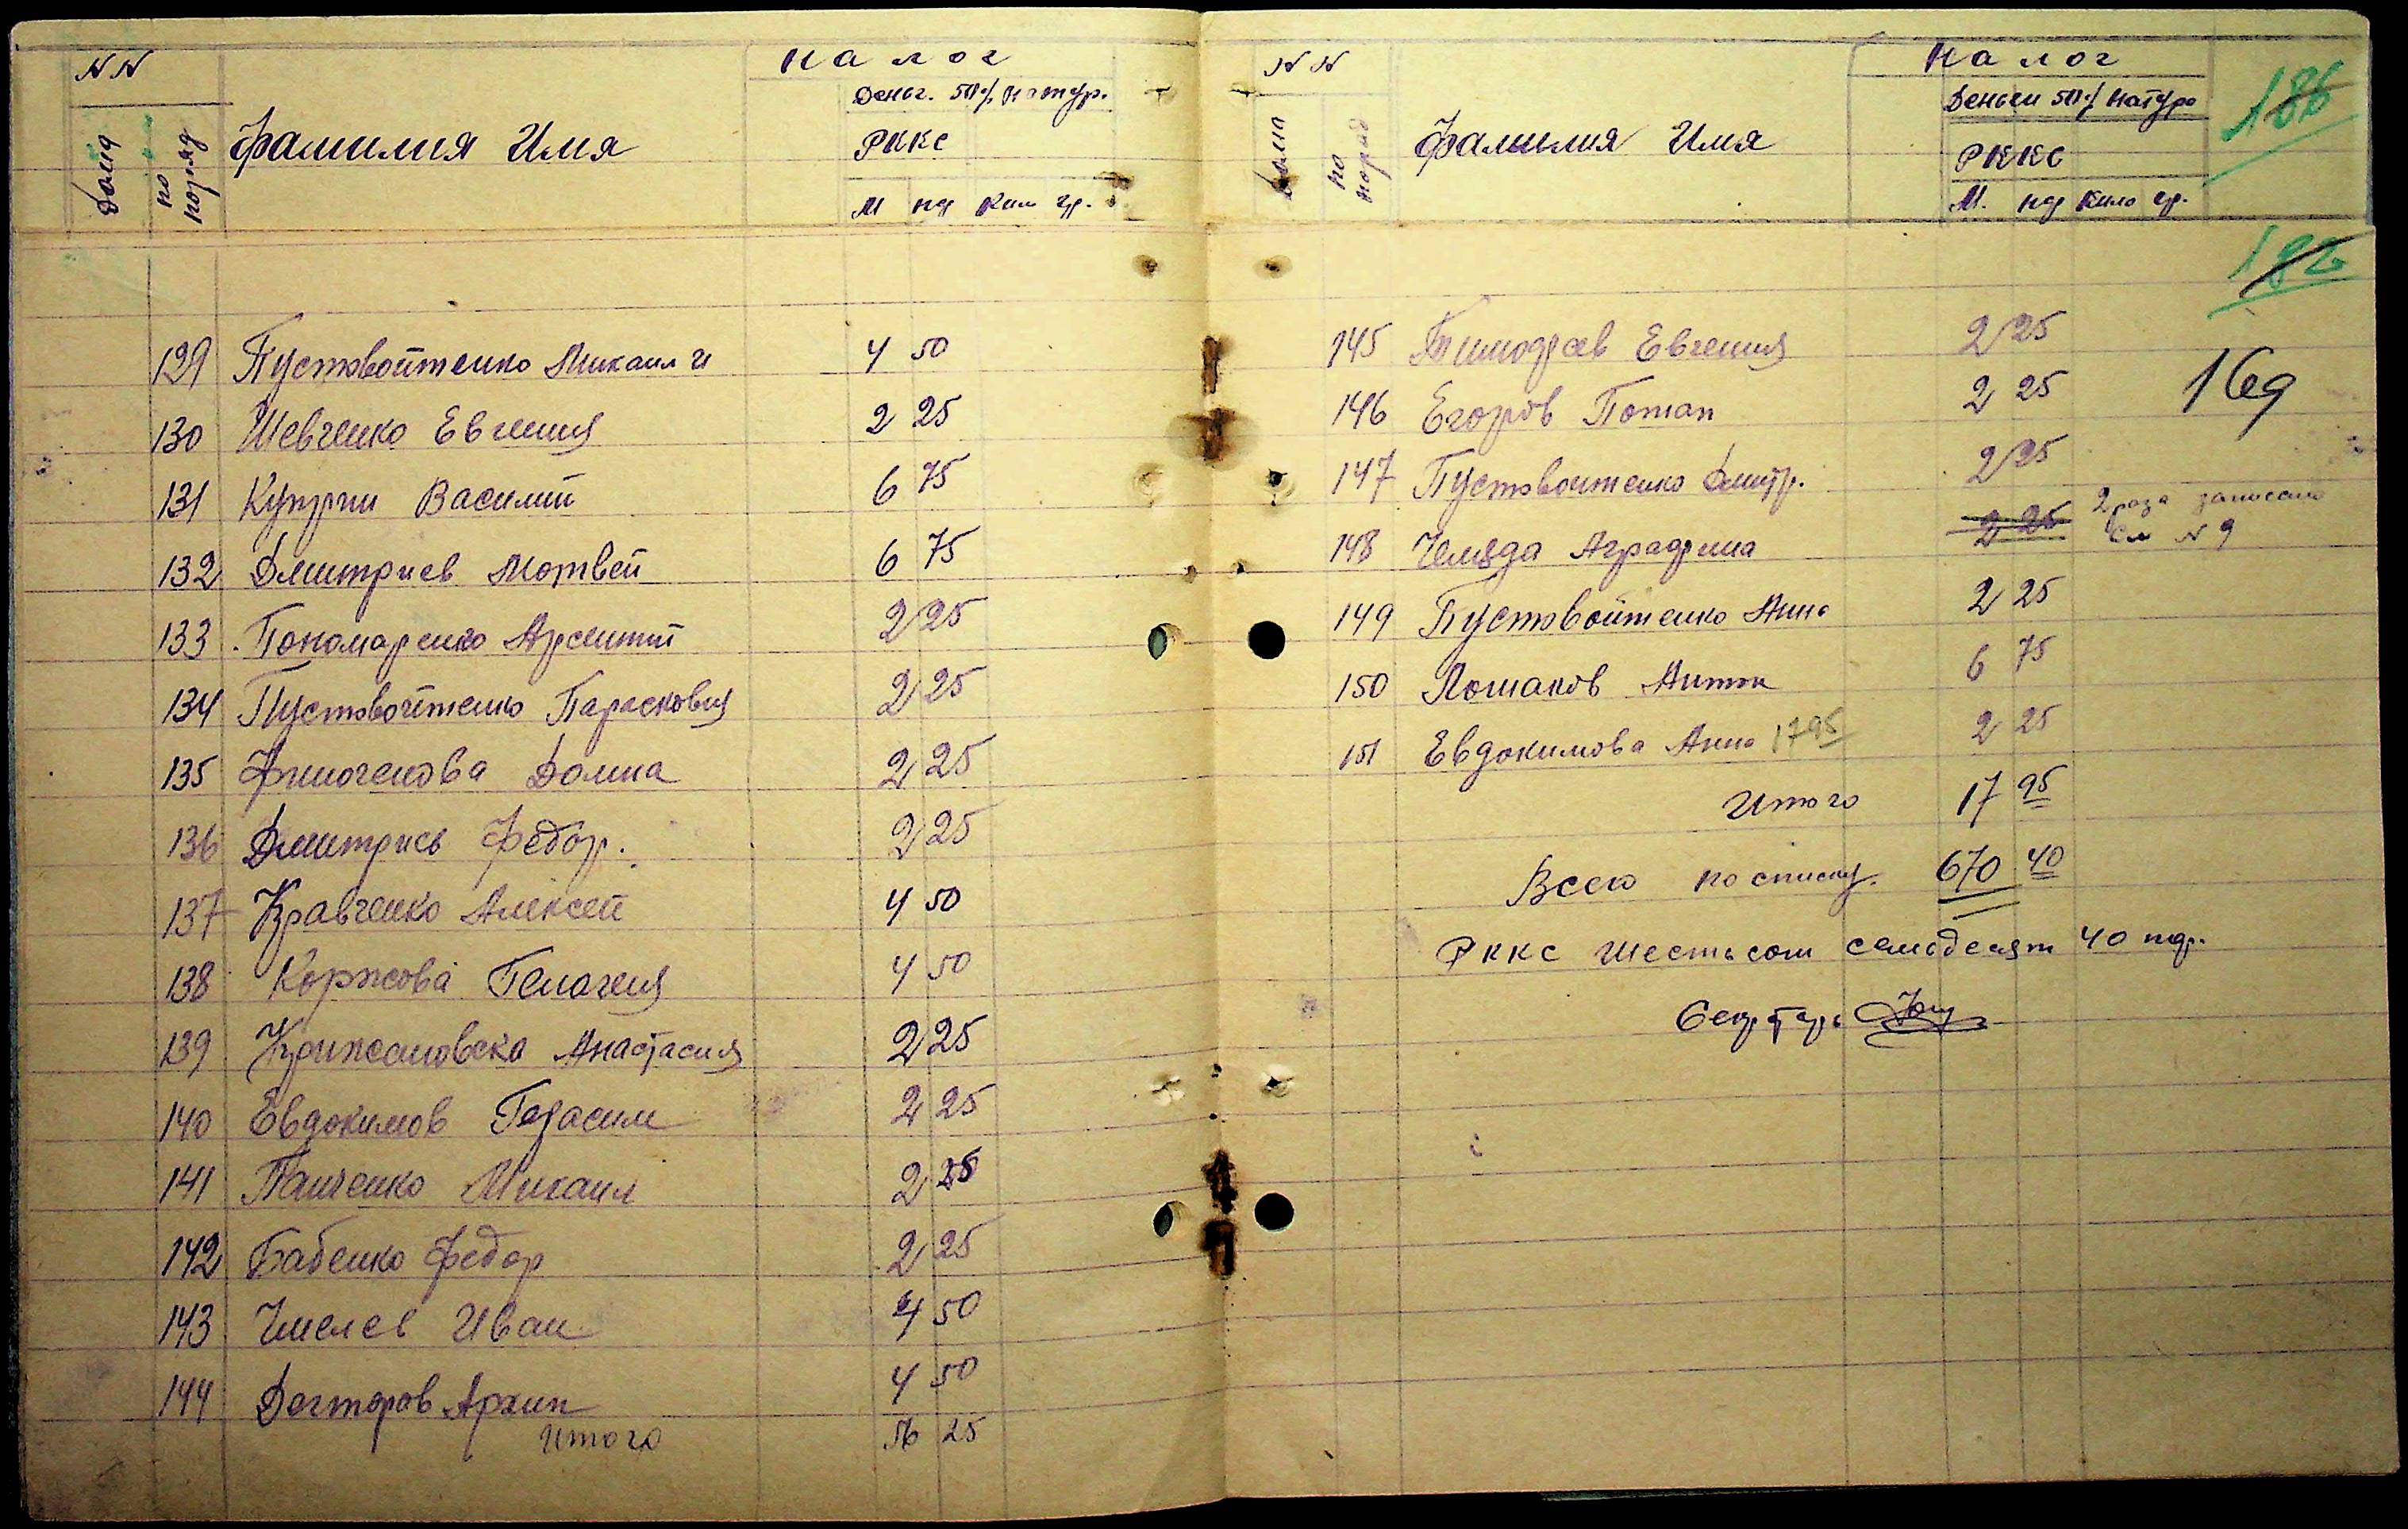 NN
Дома
по поряд
Фамилия Имя
Налог
Деньг. 50% Натур.
РККС
М пф Кил гр.
129 Пустовойтенко Михаил И 4 50
130 Шевченко Евгения 2 25
131 Куприн Василий 6 75
132 Дмитриев Мотвей 6 75
133 Пономаренко Арсентий 2 25
134 Пустовойтенко Парасковия 2 25
135 Финогенова Домна 2 25
136 Дмитриев Федор. 2 25
137 Кравченко Алексей 4 50
138 Коржова Пелагея 4 50
139 Крижановска Анастасия 2 25
140 Евдокимов Герасим 2 25
141 Панченко Михаил 2 25
142 Бабенко Федор 2 25
143 Чмелев Иван 4 50
144 Дегтеров Архип 4 50
Итого 56 25
NN
Дома
по поряд
Фамилия Имя
Налог
Деньги 50% Натура
РККС
М. пф Кило гр.
186
186
169
145 Тимофеев Евгения 2 25
146 Егоров Потап 2 25
147 Пустовоитенко Дмитр. 2 25
148 Чемяда Аграфина 2 25 2 раза записана
См N 9
149 Пустовойтенко Анна 2 25
150 Лошаков Антон 6 75
151 Евдокимова Анна 1795 2 25
Итого 17 95
Всего по списку. 670 40
РККС Шестьсот семьдесят 40 пф.
Секретарь